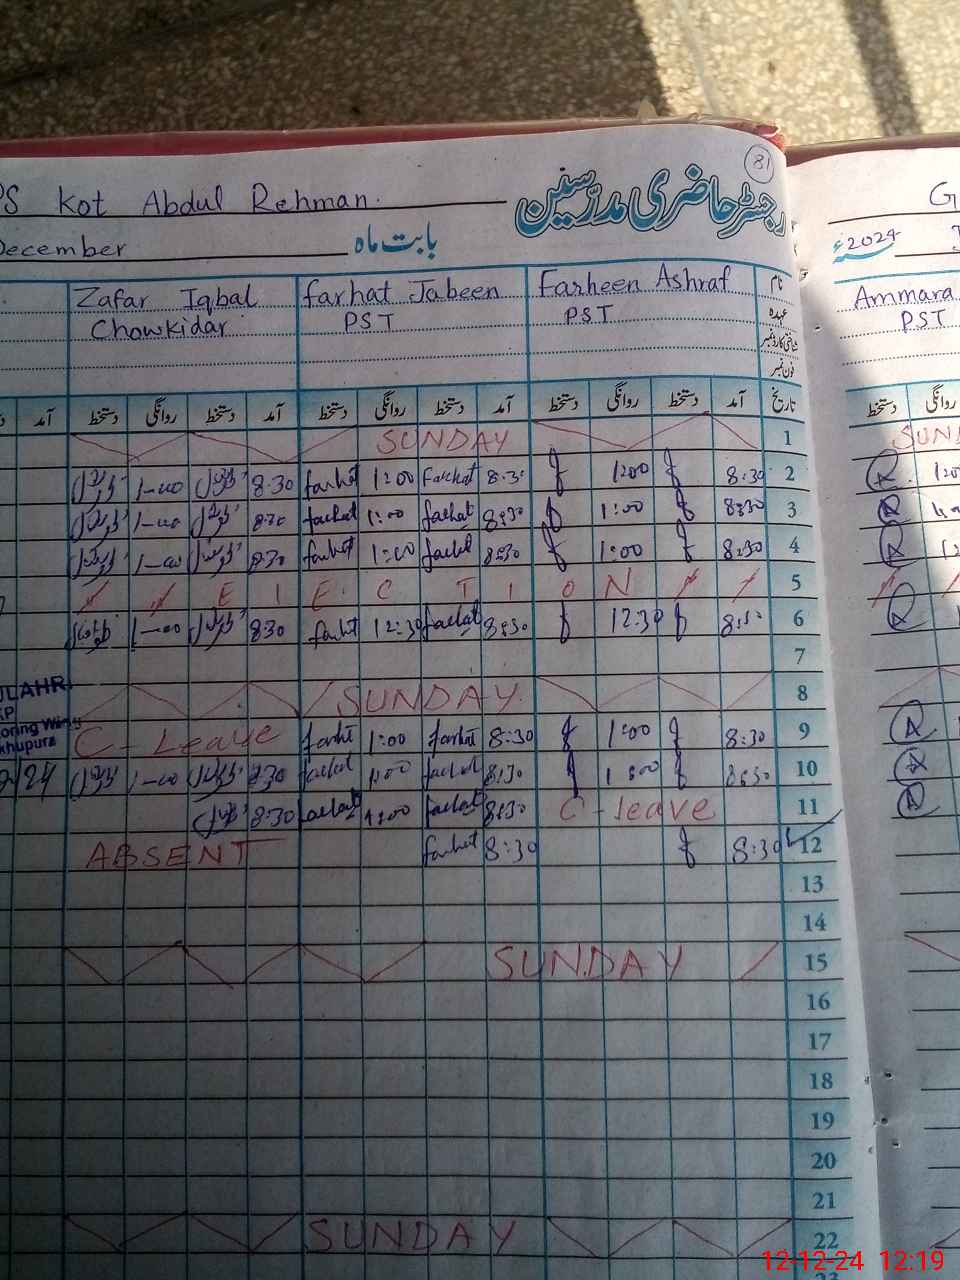 81
PS Kot Abdul Rehman.
رجسٹر حاضری مدرسین
December بابت ماہ
2024
Zafar Iqbal farhat Jabeen Farheen Ashraf نام
Chowkidar PST PST عہدہ
شناختی کارڈ نمبر
فون نمبر
Ammara
PST
آمد دستخط روانگی دستخط آمد دستخط روانگی دستخط آمد دستخط روانگی دستخط تاریخ
دستخط روانگی
SUNDAY 1
1-00 8:30 farhat 1:00 Farhat 8:30 1:00 8:30 2
1-00 8:30 farhat 1:00 farhat 8:30 1:00 8:30 3
1-00 8:30 farhat 1:00 farhat 8:30 1:00 8:30 4
E l E C T I O N 5
1-00 8:30 farhat 12:30 farhat 8:30 12:30 8:30 6
7
SUNDAY. 8
C-Leave farhat 1:00 farhat 8:30 1:00 8:30 9
24 1-00 8:30 farhat 1:00 farhat 8:30 1:00 8:30 10
8:30 farhat 1:00 farhat 8:30 C-leave 11
ABSENT farhat 8:30 8:30 12
13
14
SUNDAY 15
16
17
18
19
20
21
SUNDAY 22
23
12-12-24 12:19